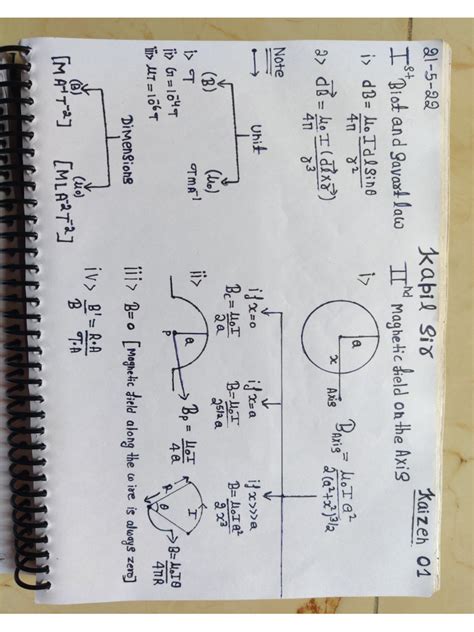 21-5-22
Kapil Sir
Kaizen 01
Ist Biot and Savart law
i> dB = μ0 I dl sinθ / 4π r²
2> dB = μ0 I (dl×r) / 4π r³
Note
unit
(B)
(μ0)
i> T
TmA⁻¹
ii> G = 10⁻⁴T
iii> μT = 10⁻⁶T
Dimensions
(B)
(μ0)
[MA⁻¹T⁻²]
[MLA⁻²T⁻²]
IInd Magnetic field on the Axis
i>
a
x
Axis
B Axis = μ0 I a² / 2(a²+x²)^3/2
if x=0
Bc = μ0 I / 2a
if x=a
B = μ0 I / 2^5/2 a
if x>>>a
B = μ0 I a² / 2x³
ii>
a
P
Bp = μ0 I / 4a
I
R
θ
B = μ0 I θ / 4πR
iii> B=0 [Magnetic field along the wire is always zero]
iv> B' / B = R·A / T·A